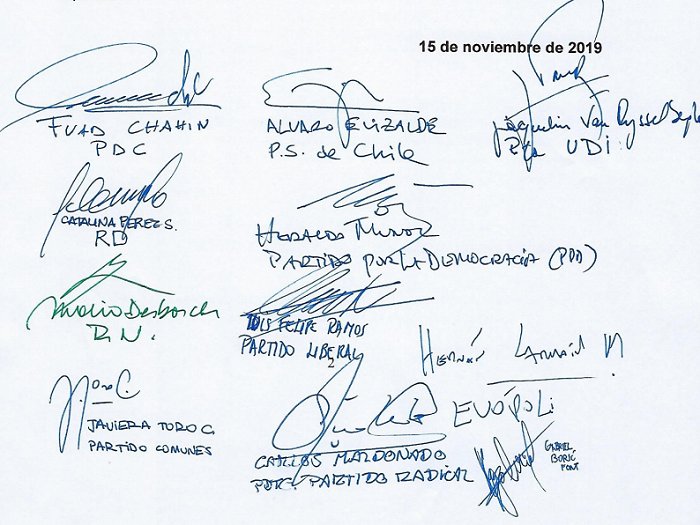 15 de noviembre de 2019
FUAD CHAHIN
PDC
ALVARO ELIZALDE
P.S. de Chile
Jaquelin Van Rysselberghe
Pta UDI
CATALINA PEREZ S.
RD
HERALDO MUÑOZ
PARTIDO POR LA DEMOCRACIA (PPD)
Mario Desbordes
R.N.
LUIS FELIPE RAMOS
PARTIDO LIBERAL
HERNÁN LARRAÍN M
EVÓPOLI
JAVIERA TORO C
PARTIDO COMUNES
CARLOS MALDONADO
PDTE. PARTIDO RADICAL
GABRIEL
BORIC
FONT